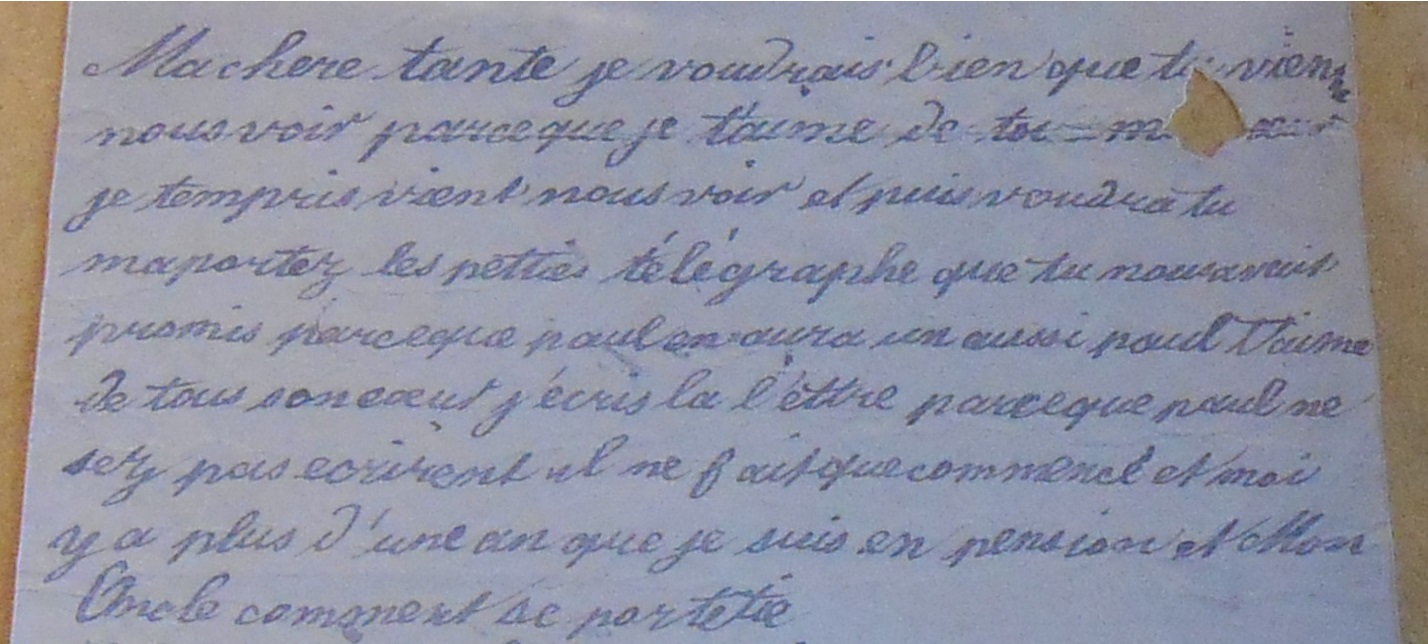 Ma chere tante je voudrais bien que tu vien
nous voir parceque je t'aime de tou m cœur
je tempris vient nous voir et puis voudra tu
maportez les petties télégraphe que tu nous avait
promis parceque paul en aura un aussi paul t'aime
de tous son cœur j'écris la l'èttre parceque paul ne
sez pas ecrirent il ne fait que commencé et moi
y a plus d'une an que je suis en pension et Mon
Oncle comment se portetie